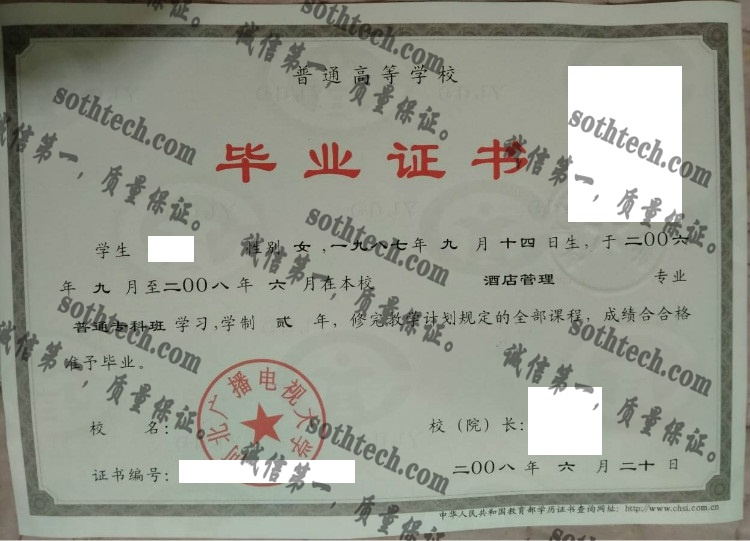 普通高等学校
毕业证书
学生 性别 女,一九八七年 九 月 十四 日生, 于 二OO六
年 九 月至二OO八年 六 月在本校 酒店管理 专业
普通专科班 学习,学制 贰 年, 修完教学计划规定的全部课程, 成绩合合格
准予毕业。
北广播电视大学
校 名: 校（院）长:
证书编号: 二OO八 年 六 月 二十 日
中华人民共和国教育部学历证书查询网址: http://www.chsi.com.cn
sothtech.com
诚信第一，质量保证。
sothtech.com
诚信第一，质量保证。
sothtech.com
诚信第一，质量保证。
sothtech.com
诚信第一，质量保证。
sothtech.com
诚信第一，质量保证。
sothtech.com
诚信第一，质量保证。
sothtech.com
诚信第一，质量保证。
sothtech.com
诚信第一，质量保证。